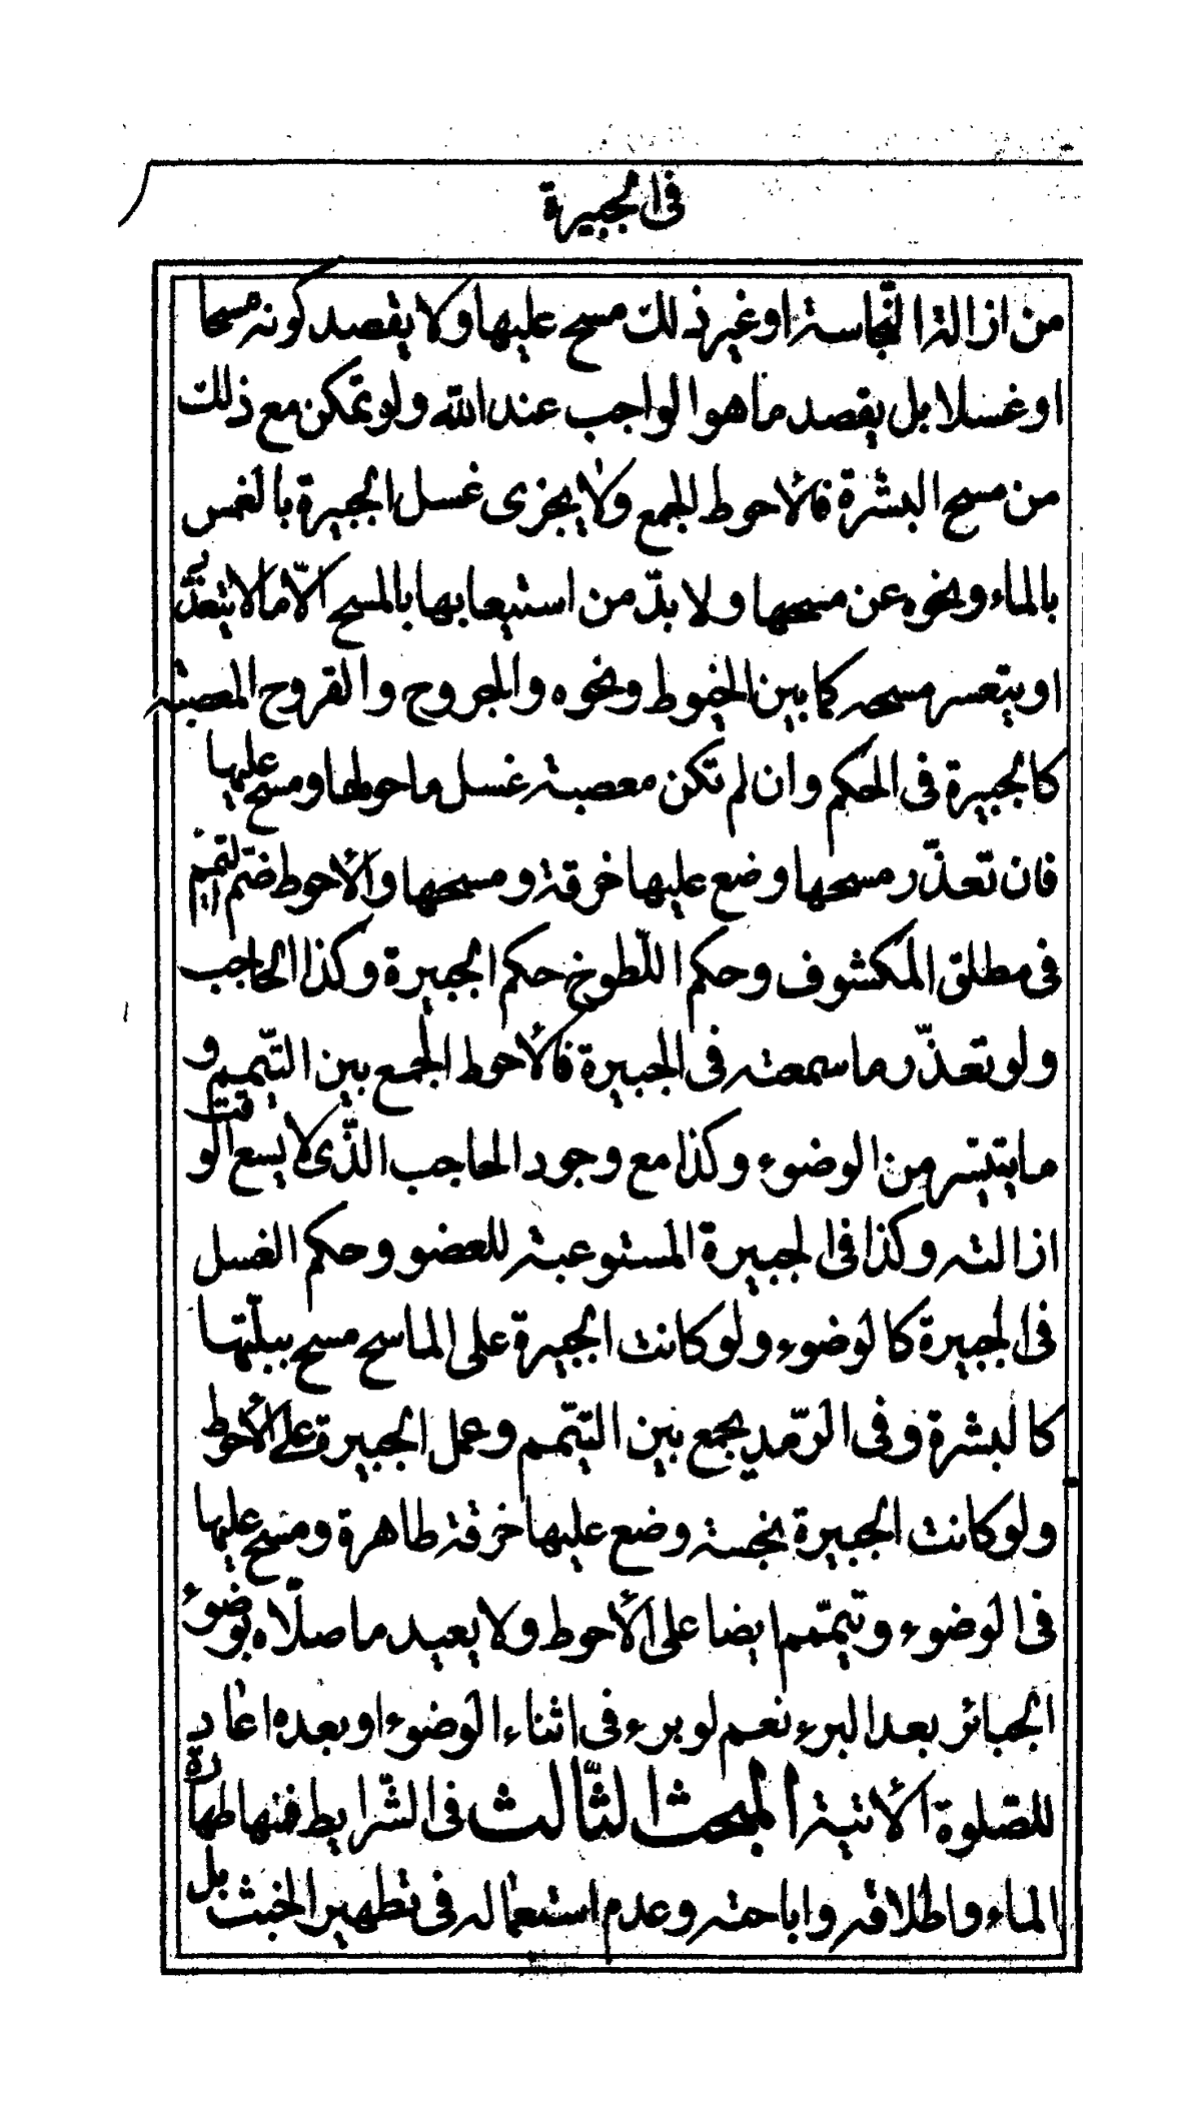 فى الجبيرة
من ازالة النّجاسة او غير ذلك مسح عليها ولا يقصد كونه مسحا
او غسلا بل يقصد ما هو الواجب عند الله ولو تمكن مع ذلك
من مسح البشرة فالأحوط الجمع ولا يجزى غسل الجبيرة بالغمس
بالماء ونحوه عن مسحها ولا بدّ من استيعابها بالمسح الّا ما لا يتعذّر
او يتعسر مسحه كما بين الخيوط ونحوه والجروح والقروح المعصبة
كالجبيرة فى الحكم وان لم تكن معصبة غسل ما حولها ومسح عليها
فان تعذّر مسحها وضع عليها خرقة ومسحها والأحوط ضمّ التيمم
فى مطلق المكشوف وحكم اللّطوخ حكم الجبيرة وكذا الحاجب
ولو تعذّر ما سمعته فى الجبيرة فالأحوط الجمع بين التيّمم و
ما يتيسّر من الوضوء وكذا مع وجود الحاجب الذّى لا يسع الوقت
ازالته وكذا فى الجبيرة المستوعبة للعضو وحكم الغسل
فى الجبيرة كالوضوء ولو كانت الجبيرة على الماسح مسح ببلّتها
كالبشرة وفى الرّمد يجمع بين التيّمم وعمل الجبيرة على الأحوط
ولو كانت الجبيرة نجسة وضع عليها خرقة طاهرة ومسح عليها
فى الوضوء وتيمّم ايضا على الأحوط ولا يعيد ما صلّاه بوضوء
الجبائر بعد البرء نعم لو برء فى اثناء الوضوء او بعده اعاد
للصّلوة الأتية المبحث الثّالث فى الشّرايط فمنها طهارة
الماء واطلاقه واباحته وعدم استعماله فى تطهير الخبث بل